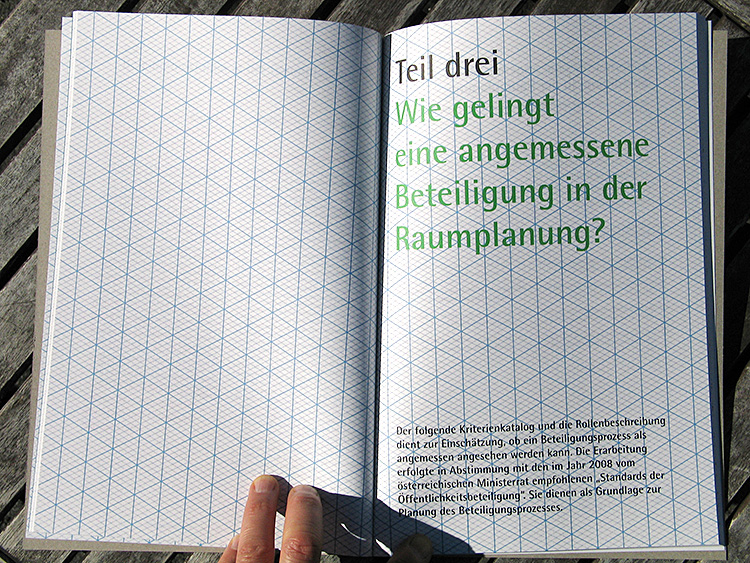 Teil drei
Wie gelingt
eine angemessene
Beteiligung in der
Raumplanung?
Der folgende Kriterienkatalog und die Rollenbeschreibung
dient zur Einschätzung, ob ein Beteiligungsprozess als
angemessen angesehen werden kann. Die Erarbeitung
erfolgte in Abstimmung mit den im Jahr 2008 vom
österreichischen Ministerrat empfohlenen „Standards der
Öffentlichkeitsbeteiligung“. Sie dienen als Grundlage zur
Planung des Beteiligungsprozesses.